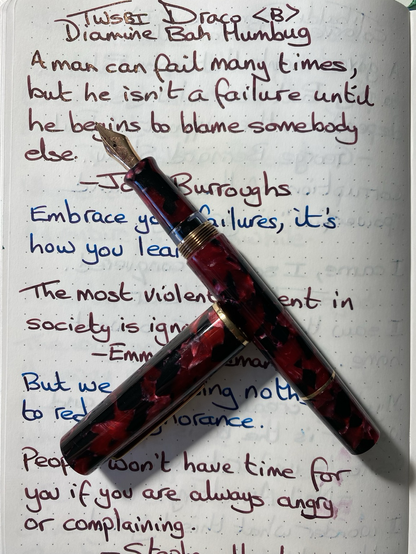 TWSBI Draco <B>
Diamine Bah Humbug
A man can fail many times,
but he isn't a failure until
he begins to blame somebody
else.
- Burroughs
Embrace failures, it's
how you
The most violent in
society is
-
But we
to
People won't have time for
you if you are always angry
or complaining.
-